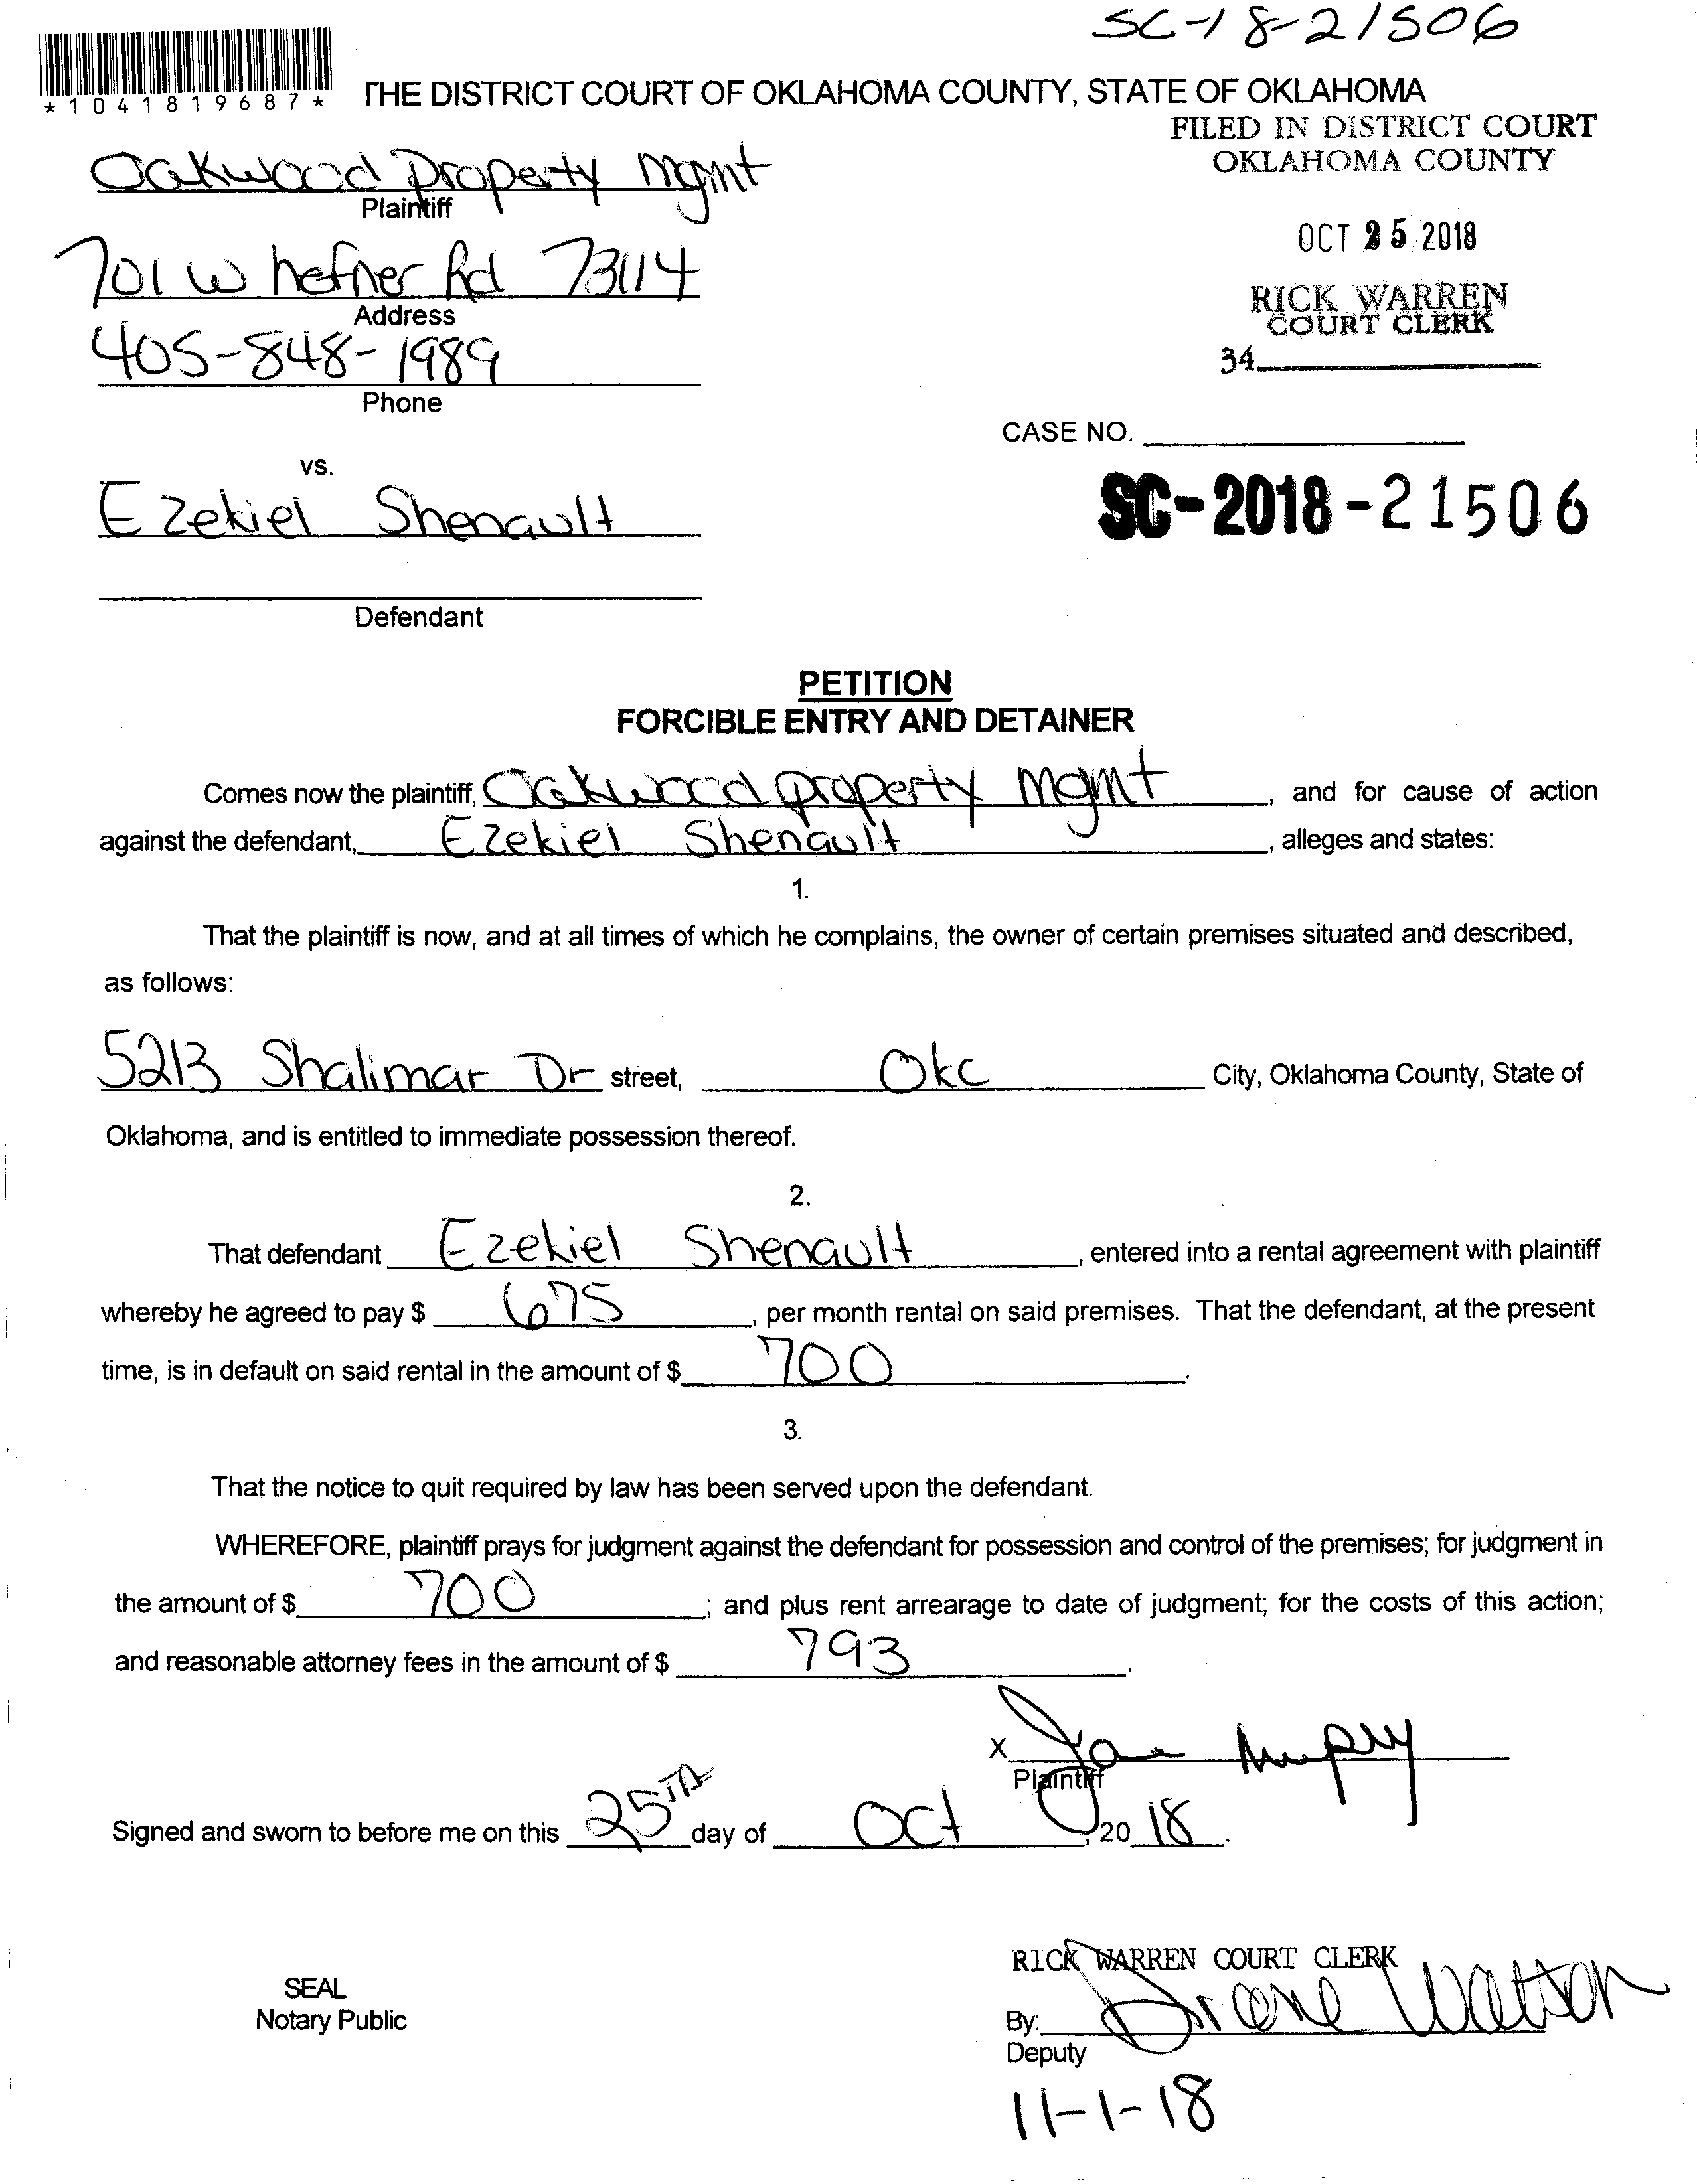 SC-18-21506
*1041819687*
THE DISTRICT COURT OF OKLAHOMA COUNTY, STATE OF OKLAHOMA
FILED IN DISTRICT COURT
OKLAHOMA COUNTY
Oakwood Property Mgmt
Plaintiff
OCT 25 2018
701 W hefner Rd 73114
Address
RICK WARREN
COURT CLERK
405-848-1989
34
Phone
CASE NO.
vs.
SC-2018-21506
Ezekiel Shenault
Defendant
PETITION
FORCIBLE ENTRY AND DETAINER
Comes now the plaintiff, Oakwood property Mgmt, and for cause of action
against the defendant, Ezekiel Shenault, alleges and states:
1.
That the plaintiff is now, and at all times of which he complains, the owner of certain premises situated and described,
as follows:
5213 Shalimar Dr street, Okc City, Oklahoma County, State of
Oklahoma, and is entitled to immediate possession thereof.
2.
That defendant Ezekiel Shenault, entered into a rental agreement with plaintiff
whereby he agreed to pay $ 675, per month rental on said premises. That the defendant, at the present
time, is in default on said rental in the amount of $ 700.
3.
That the notice to quit required by law has been served upon the defendant.
WHEREFORE, plaintiff prays for judgment against the defendant for possession and control of the premises; for judgment in
the amount of $ 700; and plus rent arrearage to date of judgment; for the costs of this action;
and reasonable attorney fees in the amount of $ 793.
X
Plaintiff
Signed and sworn to before me on this 25TH day of Oct, 20 18.
RICK WARREN COURT CLERK
SEAL
Notary Public
By: Diane Watson
Deputy
11-1-18